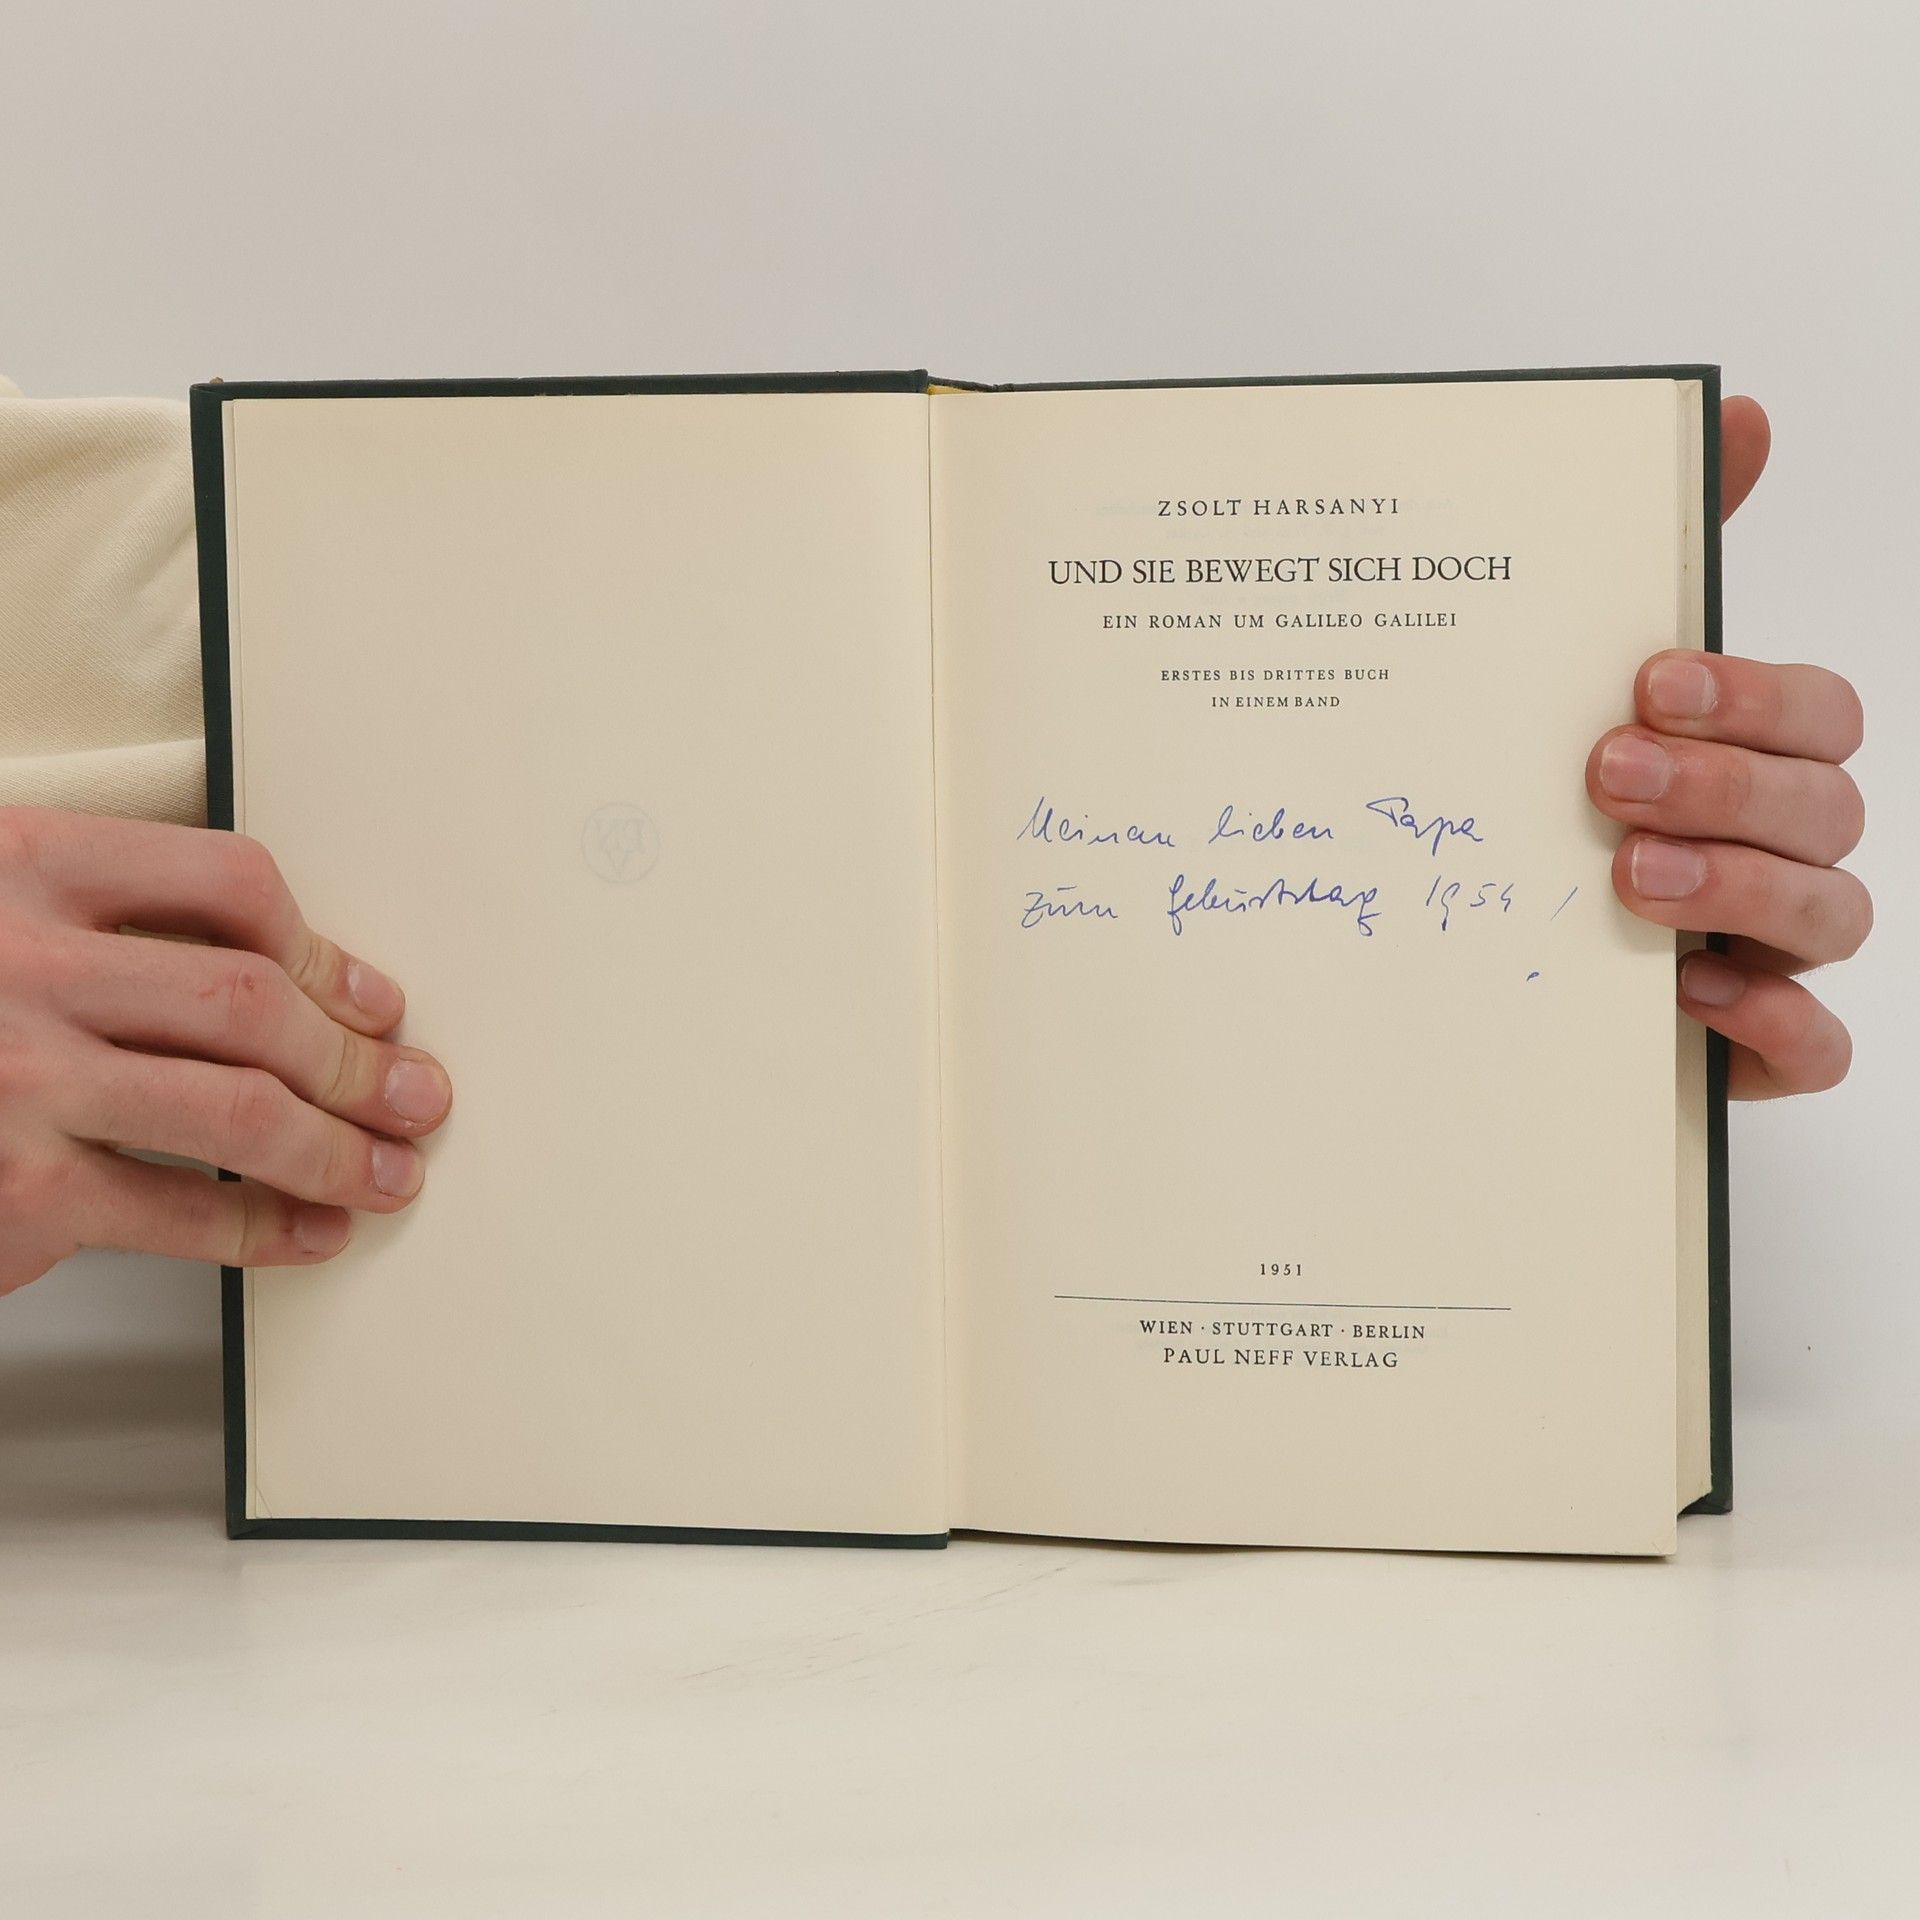 ZSOLT HARSANYI
UND SIE BEWEGT SICH DOCH
EIN ROMAN UM GALILEO GALILEI
ERSTES BIS DRITTES BUCH
IN EINEM BAND
Meinem lieben Papa
zum Geburtstag 1954 !
1951
WIEN · STUTTGART · BERLIN
PAUL NEFF VERLAG